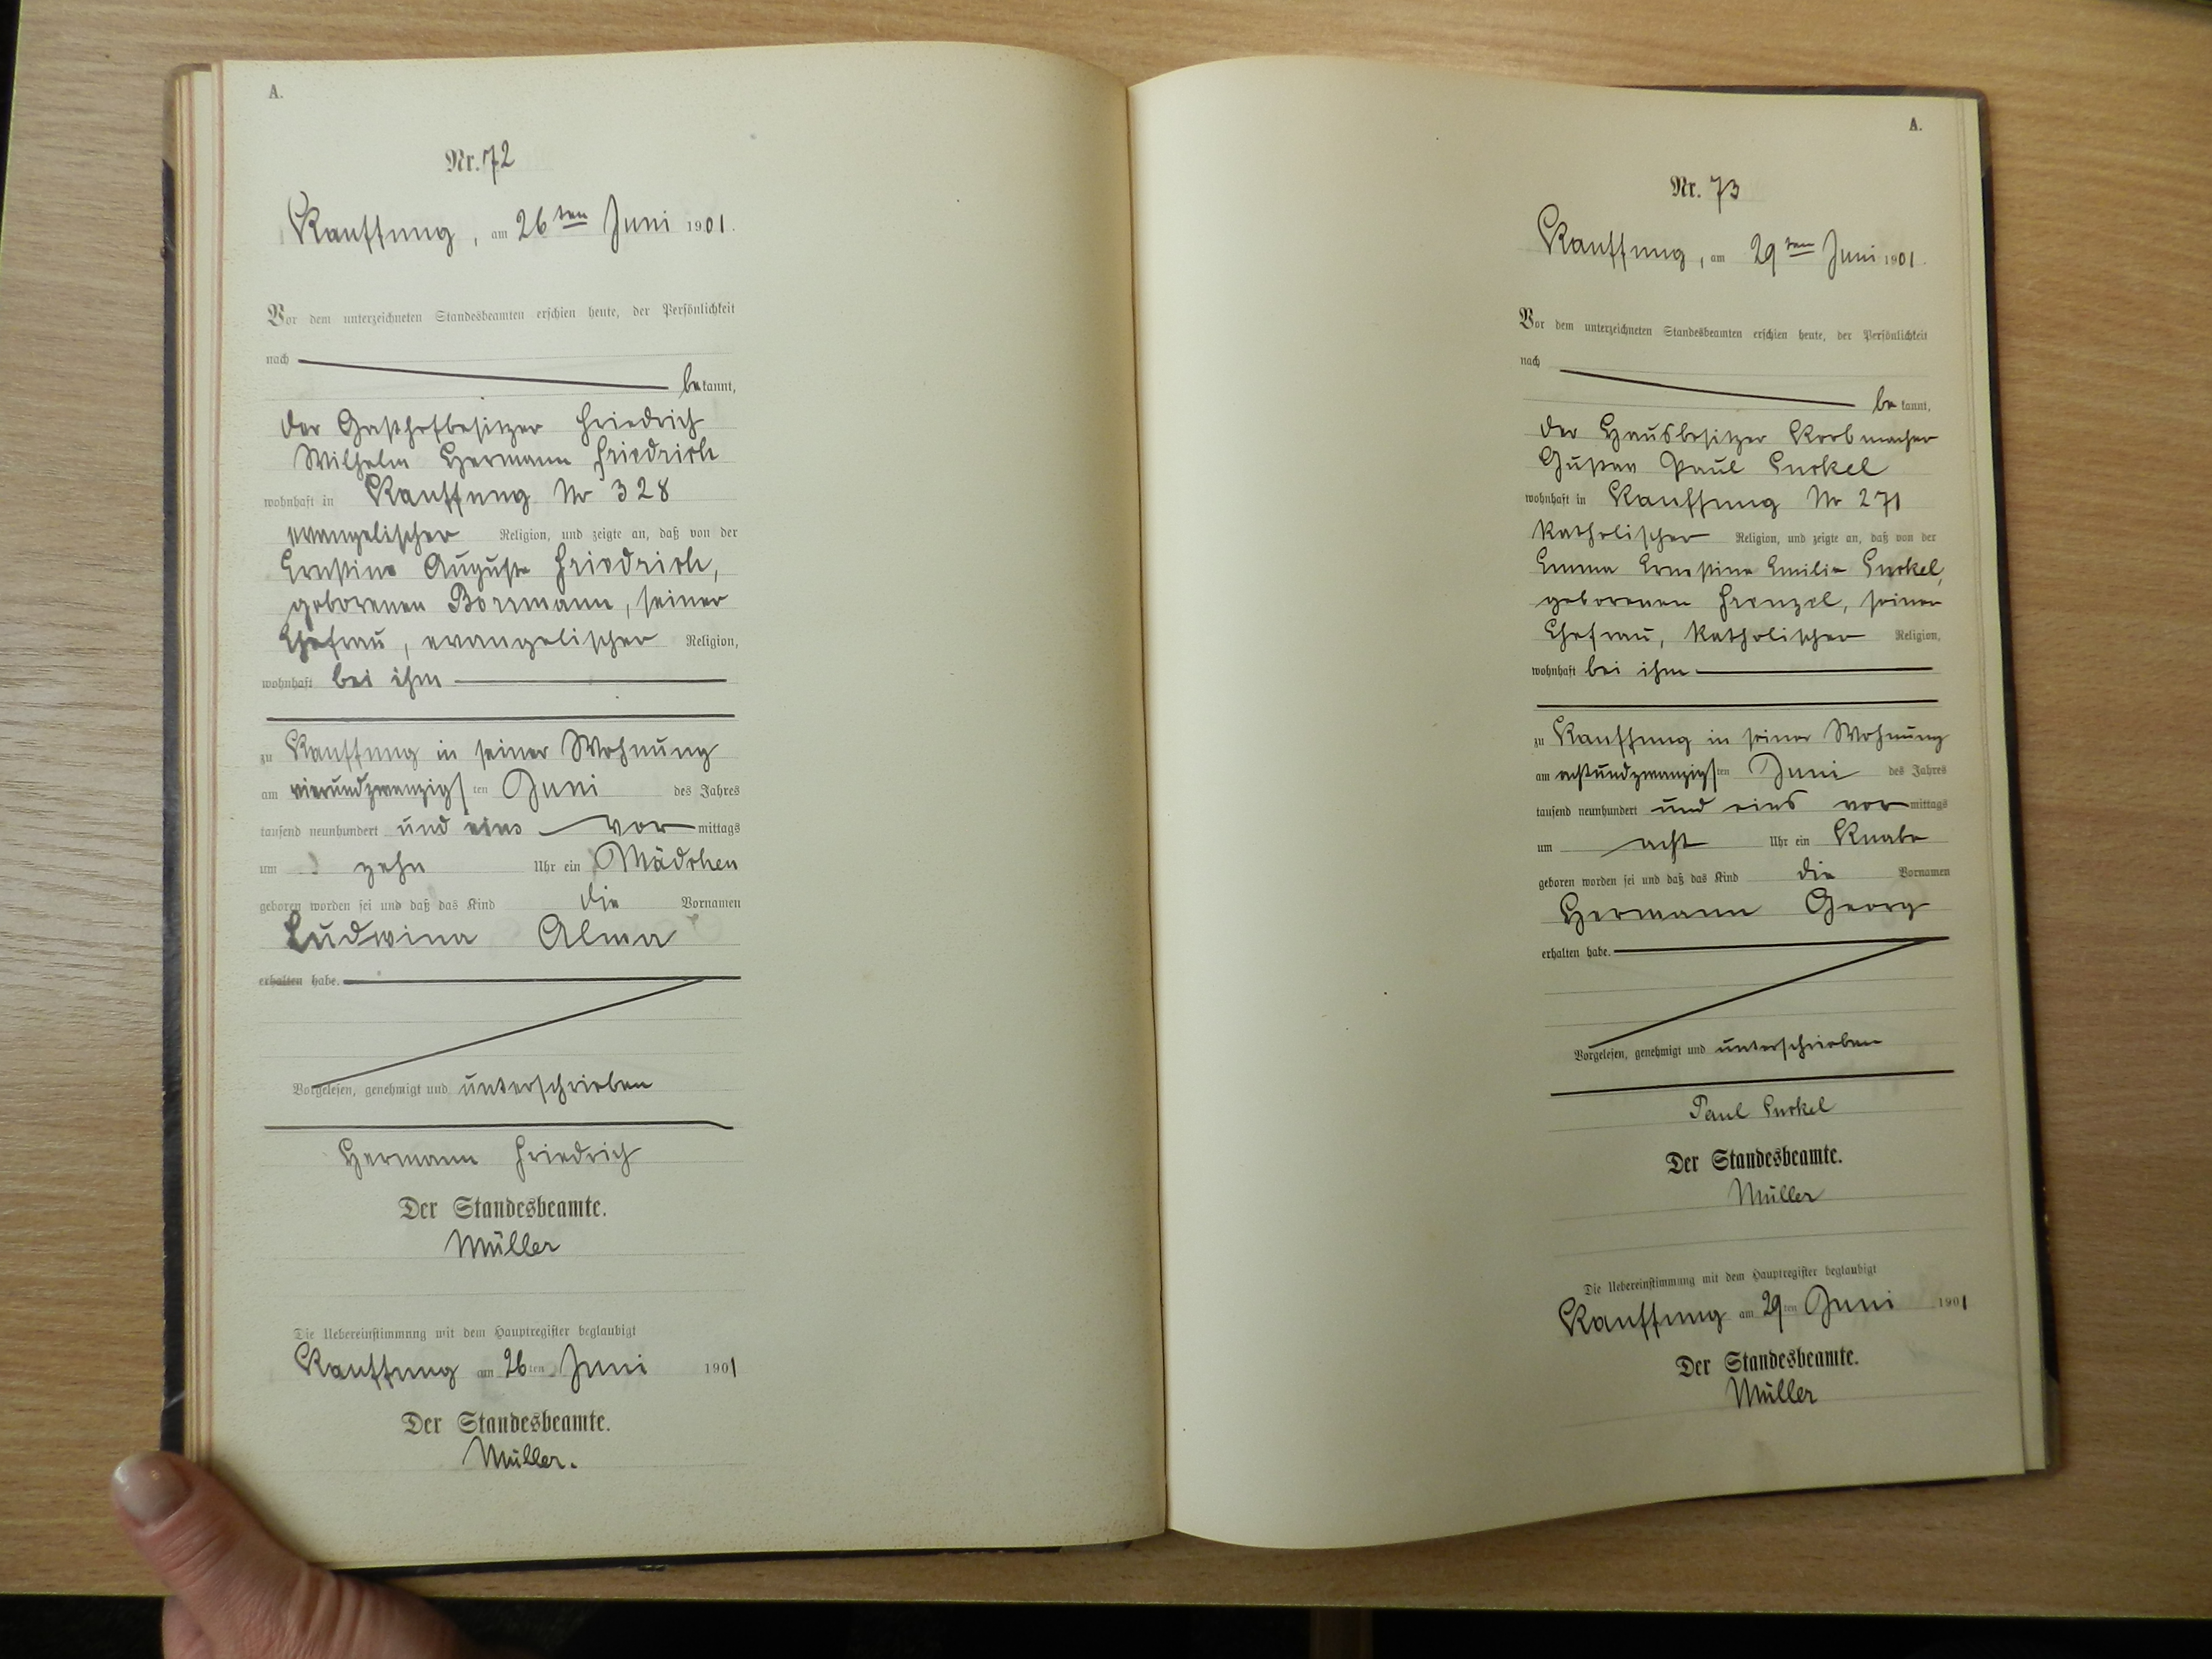 A.
Nr. 72
Kauffung, am 26ten Juni 1901.
Vor dem unterzeichneten Standesbeamten erschien heute, der Persönlichkeit
nach
bekannt,
der Gasthofbesitzer Friedrich
Wilhelm Hermann Friedrich
wohnhaft in Kauffung Nr 328
evangelischer Religion, und zeigte an, daß von der
Ernstine Auguste Friedrich,
geborenen Borrmann, seiner
Ehefrau, evangelischer Religion,
wohnhaft bei ihm
zu Kauffung in seiner Wohnung
am vierundzwanzigsten Juni des Jahres
tausend neunhundert und eins vormittags
um zehn Uhr ein Mädchen
geboren worden sei und daß das Kind die Vornamen
Ludwina Alma
erhalten habe.
Vorgelesen, genehmigt und unterschrieben
Hermann Friedrich
Der Standesbeamte.
Müller
Die Uebereinstimmung mit dem Hauptregister beglaubigt
Kauffung am 26ten Juni 1901
Der Standesbeamte.
Müller.
A.
Nr. 73
Kauffung, am 29ten Juni 1901.
Vor dem unterzeichneten Standesbeamten erschien heute, der Persönlichkeit
nach
bekannt,
der Hausbesitzer Korbmacher
Gustav Paul
wohnhaft in Kauffung Nr 271
katholischer Religion, und zeigte an, daß von der
Emma Ernestine Emilie
geborenen Frenzel, seiner
Ehefrau, katholischer Religion,
wohnhaft bei ihm
zu Kauffung in seiner Wohnung
am achtundzwanzigsten Juni des Jahres
tausend neunhundert und eins vormittags
um acht Uhr ein Knabe
geboren worden sei und daß das Kind die Vornamen
Hermann Georg
erhalten habe.
Vorgelesen, genehmigt und unterschrieben
Paul
Der Standesbeamte.
Müller
Die Uebereinstimmung mit dem Hauptregister beglaubigt
Kauffung am 29ten Juni 1901
Der Standesbeamte.
Müller